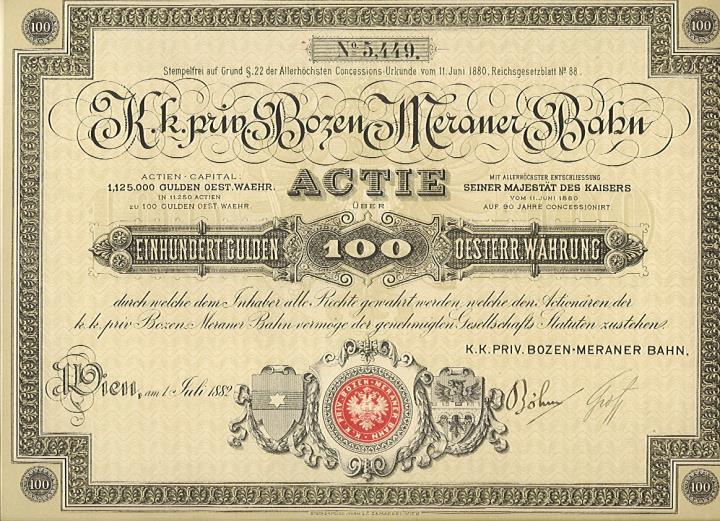 100
100
No 5,449.
Stempelfrei auf Grund §.22 der Allerhöchsten Concessions-Urkunde vom 11. Juni 1880, Reichsgesetzblatt No 88.
K.k.priv. Bozen Meraner Bahn
ACTIEN-CAPITAL:
1,125.000 GULDEN OEST. WAEHR.
IN 11.250 ACTIEN
ZU 100 GULDEN OEST. WAEHR.
ACTIE
ÜBER
MIT ALLERHÖCHSTER ENTSCHLIESSUNG
SEINER MAJESTÄT DES KAISERS
VOM 11. JUNI 1880
AUF 90 JAHRE CONCESSIONIRT.
EINHUNDERT GULDEN 100 OESTERR. WÄHRUNG
durch welche dem Inhaber alle Rechte gewährt werden, welche den Actionären der
k.k. priv. Bozen-Meraner Bahn vermöge der genehmigten Gesellschafts Statuten zustehen.
K.K. PRIV. BOZEN-MERANER BAHN.
Wien, am 1. Juli 1882
K.K. PRIV. BOZEN-MERANER BAHN
Böhm
100
100